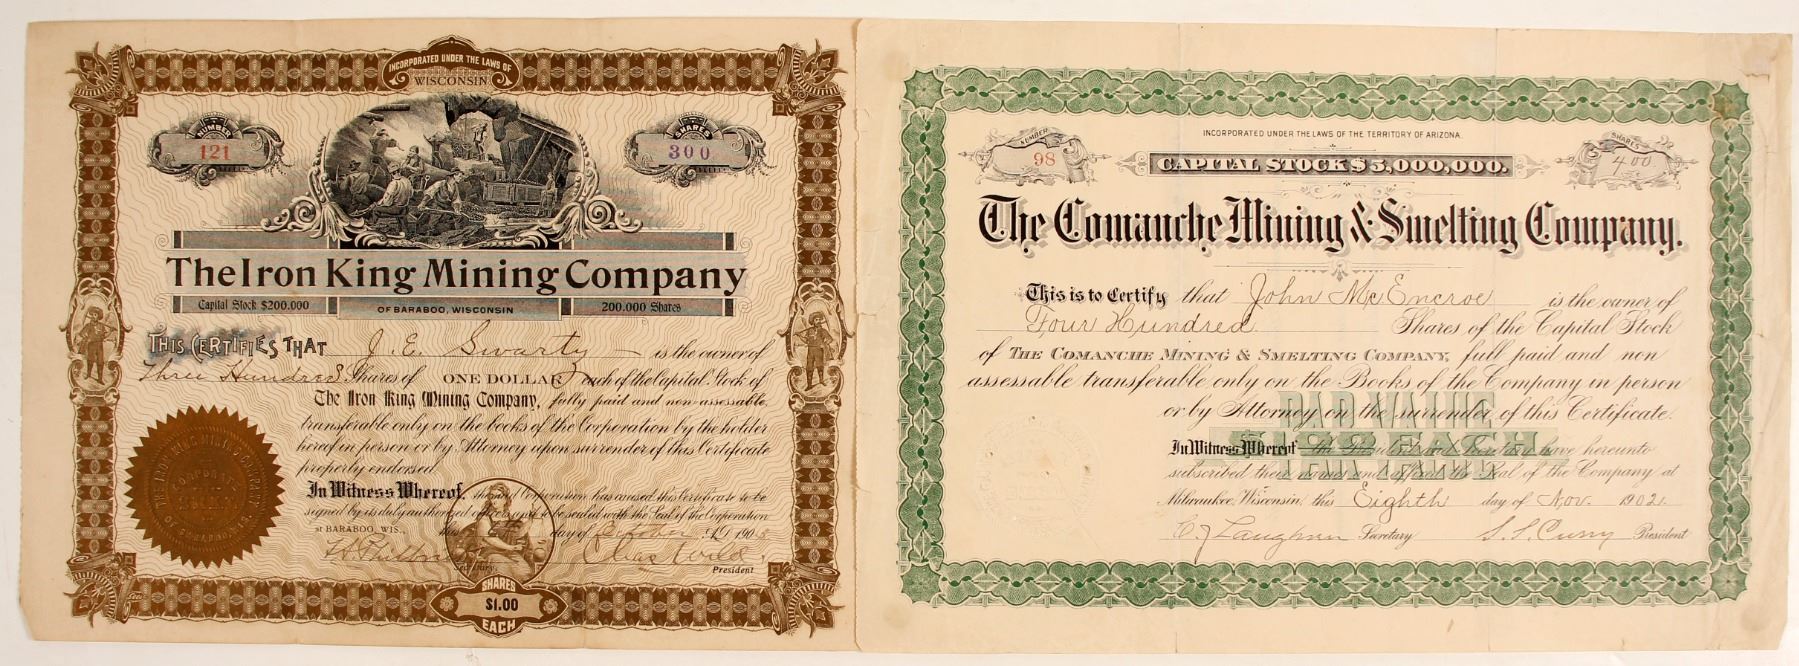 INCORPORATED UNDER THE LAWS OF
WISCONSIN
NUMBER
121
SHARES
300
The Iron King Mining Company
Capital Stock $200.000
OF BARABOO, WISCONSIN
200.000 Shares
THIS CERTIFIES THAT J. E. Swarty is the owner of
Three Hundred Shares of ONE DOLLAR each of the Capital Stock of
The Iron King Mining Company, fully paid and non-assessable,
transferable only on the books of the Corporation by the holder
hereof in person or by Attorney upon surrender of this Certificate
properly endorsed.
In Witness Whereof, the said Corporation has caused this Certificate to be
signed by its duly authorized officers and to be sealed with the Seal of the Corporation
at BARABOO, WIS., this day of A.D. 190
Chas Wild
Secretary.
President
SHARES
$1.00
EACH
INCORPORATED UNDER THE LAWS OF THE TERRITORY OF ARIZONA.
NUMBER
98
CAPITAL STOCK $5,000,000.
SHARES
400
The Comanche Mining & Smelting Company.
This is to Certify that John McEncroe is the owner of
Four Hundred Shares of the Capital Stock
of THE COMANCHE MINING & SMELTING COMPANY, full paid and non
assessable transferable only on the Books of the Company in person
or by Attorney on the surrender of this Certificate.
PAR VALUE
EACH
In Witness Whereof the have hereunto
subscribed their names and the Seal of the Company at
Milwaukee, Wisconsin, this Eighth day of Nov. 1902.
C. J. Laughren Secretary S. S. Curry President